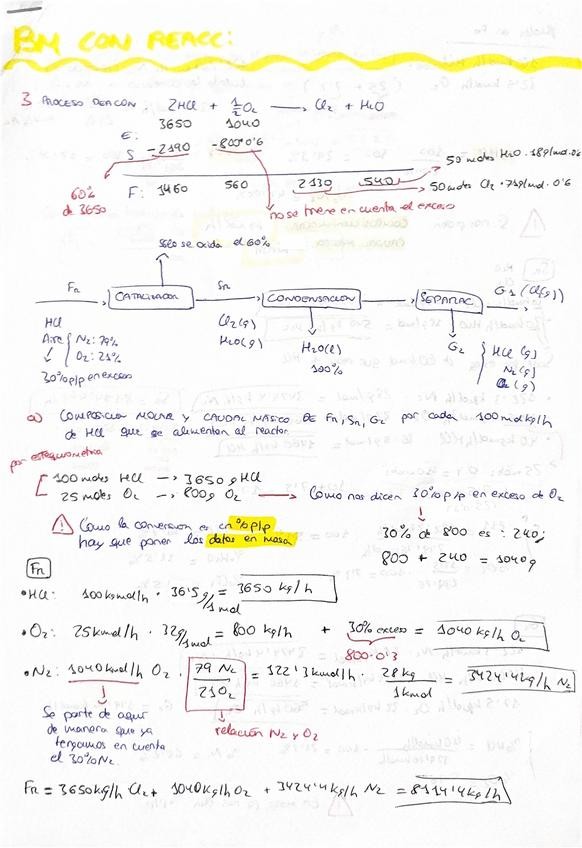 BM CON REACC:
3 PROCESO DEACON: 2HCl + 1/2 O2 → Cl2 + H2O
3650 1040
E:
S -2190 -800·0'6
50 moles H2O · 18g/mol · 0'6
F: 1460 560 2130 540
50 moles Cl2 · 71g/mol · 0'6
60% de 3650
no se tiene en cuenta el exceso
Sólo se oxida el 60%
Fn → CATALIZADOR Sn → CONDENSACION → SEPARAC → G1 (Cl2(g))
HCl
Aire N2: 79%
O2: 21%
30% p/p en exceso
Cl2(g)
H2O(g)
H2O(l)
100%
G2 HCl (g)
N2 (g)
O2 (g)
a) COMPOSICION MOLAR Y CAUDAL MÁSICO DE Fn, Sn, G2 por cada 100 mol kg/h
de HCl que se alimentan al reactor.
por estequiometria
100 moles HCl → 3650 g HCl
25 moles O2 → 800g O2 → Como nos dicen 30% p/p en exceso de O2
⚠ Como la conversion es en % p/p
hay que poner los datos en masa
30% de 800 es: 240;
800 + 240 = 1040g
Fn
• HCl: 100 kgmol/h · 36'5 g/1mol = 3650 kg/h
• O2: 25 kmol/h · 32g/1mol = 800 kg/h + 30% exceso = 1040 kg/h O2
800·0'3
• N2: 1040 kmol/h O2 · 79 N2/21 O2 = 122'3 kmol/h · 28 kg/1 kmol = 3424'4 kg/h N2
Se parte de aquí
de manera que ya
tengamos en cuenta
el 30% N2
relación N2 y O2
Fn = 3650 kg/h Cl2 + 1040 kg/h O2 + 3424'4 kg/h N2 = 8114'4 kg/h